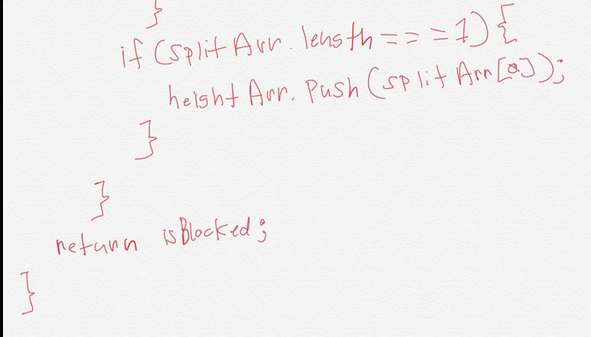 }
if (splitArr.length === 1) {
heightArr.push(splitArr[0]);
}
}
return isBlocked;
}